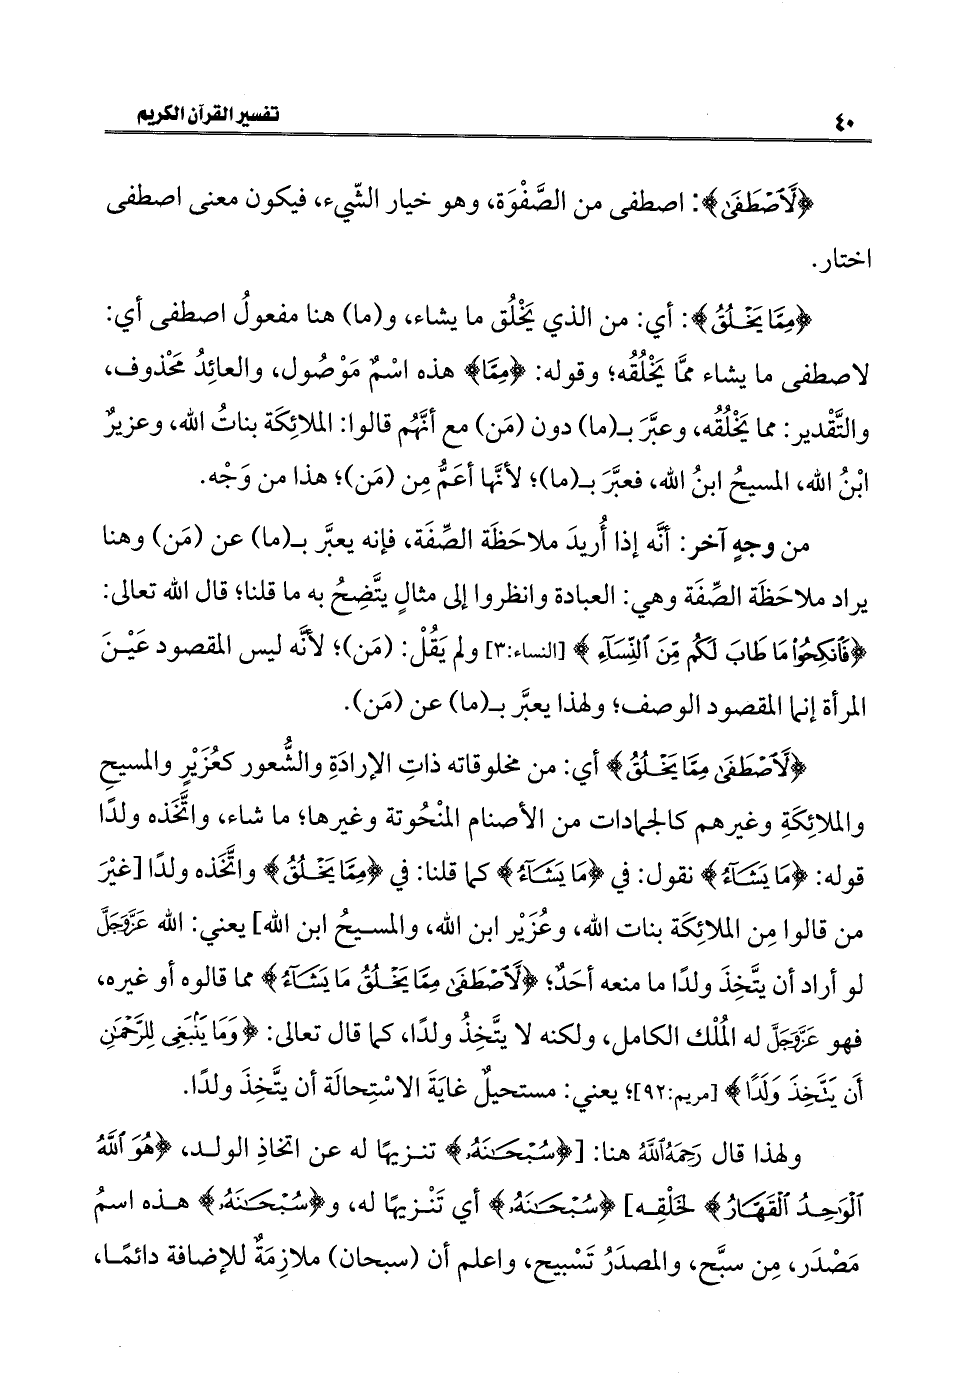 ٤٠
تفسير القرآن الكريم
﴿لَّاصْطَفَىٰ﴾: اصطفى من الصَّفْوَة، وهو خيار الشّيء، فيكون معنى اصطفى
اختار.
﴿مِمَّا يَخْلُقُ﴾: أي: من الذي يَخْلُق ما يشاء، و(ما) هنا مفعولُ اصطفى أي:
لاصطفى ما يشاء ممَّا يَخْلُقُه؛ وقوله: ﴿مِمَّا﴾ هذه اسْمٌ مَوْصُول، والعائِدُ مَحْذوف،
والتَّقْدير: مما يَخْلُقُه، وعبَّرَ بـ(ما) دون (مَن) مع أنَّهُم قالوا: الملائِكَة بناتُ الله، وعزيرٌ
ابْنُ الله، المسيحُ ابنُ الله، فعبَّرَ بـ(ما)؛ لأنَّها أعَمُّ مِن (مَن)؛ هذا من وَجْه.
من وجهٍ آخر: أنَّه إذا أُريدَ ملاحَظَة الصِّفَة، فإنه يعبَّر بـ(ما) عن (مَن) وهنا
يراد ملاحَظَة الصِّفَة وهي: العبادة وانظروا إلى مثالٍ يتَّضِحُ به ما قلنا؛ قال الله تعالى:
﴿فَانكِحُوا مَا طَابَ لَكُم مِّنَ النِّسَآءِ﴾ [النساء:٣] ولم يَقُلْ: (مَن)؛ لأنَّه ليس المقصود عَيْنَ
المرأة إنما المقصود الوصف؛ ولهذا يعبَّر بـ(ما) عن (مَن).
﴿لَّاصْطَفَىٰ مِمَّا يَخْلُقُ﴾ أي: من مخلوقاته ذاتِ الإرادَةِ والشُّعور كعُزَيْرٍ والمسيحِ
والملائِكَةِ وغيرهم كالجمادات من الأصنام المنْحُوتة وغيرها؛ ما شاء، واتَّخَذه ولدًا
قوله: ﴿مَا يَشَآءُ﴾ نقول: في ﴿مَا يَشَآءُ﴾ كما قلنا: في ﴿مِمَّا يَخْلُقُ﴾ واتَّخَذه ولدًا [غيْرَ
من قالوا مِن الملائِكَة بنات الله، وعُزَيْر ابن الله، والمسيحُ ابن الله] يعني: الله عَزَّوَجَلَّ
لو أراد أن يتَّخِذَ ولدًا ما منعه أحَدٌ؛ ﴿لَّاصْطَفَىٰ مِمَّا يَخْلُقُ مَا يَشَآءُ﴾ مما قالوه أو غيره،
فهو عَزَّوَجَلَّ له المُلْك الكامل، ولكنه لا يتَّخِذُ ولدًا، كما قال تعالى: ﴿وَمَا يَنۢبَغِى لِلرَّحْمَٰنِ
أَن يَتَّخِذَ وَلَدًا﴾ [مريم:٩٢]؛ يعني: مستحيلٌ غايَةَ الاسْتِحالَة أن يتَّخِذَ ولدًا.
ولهذا قال رَحِمَهُ اللَّهُ هنا: [﴿سُبْحَٰنَهُۥ﴾ تنزيهًا له عن اتخاذِ الولد، ﴿هُوَ اللَّهُ
الْوَٰحِدُ الْقَهَّارُ﴾ لخَلْقِه] ﴿سُبْحَٰنَهُۥ﴾ أي تَنْزيهًا له، و﴿سُبْحَٰنَهُۥ﴾ هذه اسمُ
مَصْدَر، مِن سبَّح، والمصدَرُ تَسْبيح، واعلم أن (سبحان) ملازِمَةٌ للإضافة دائمًا،